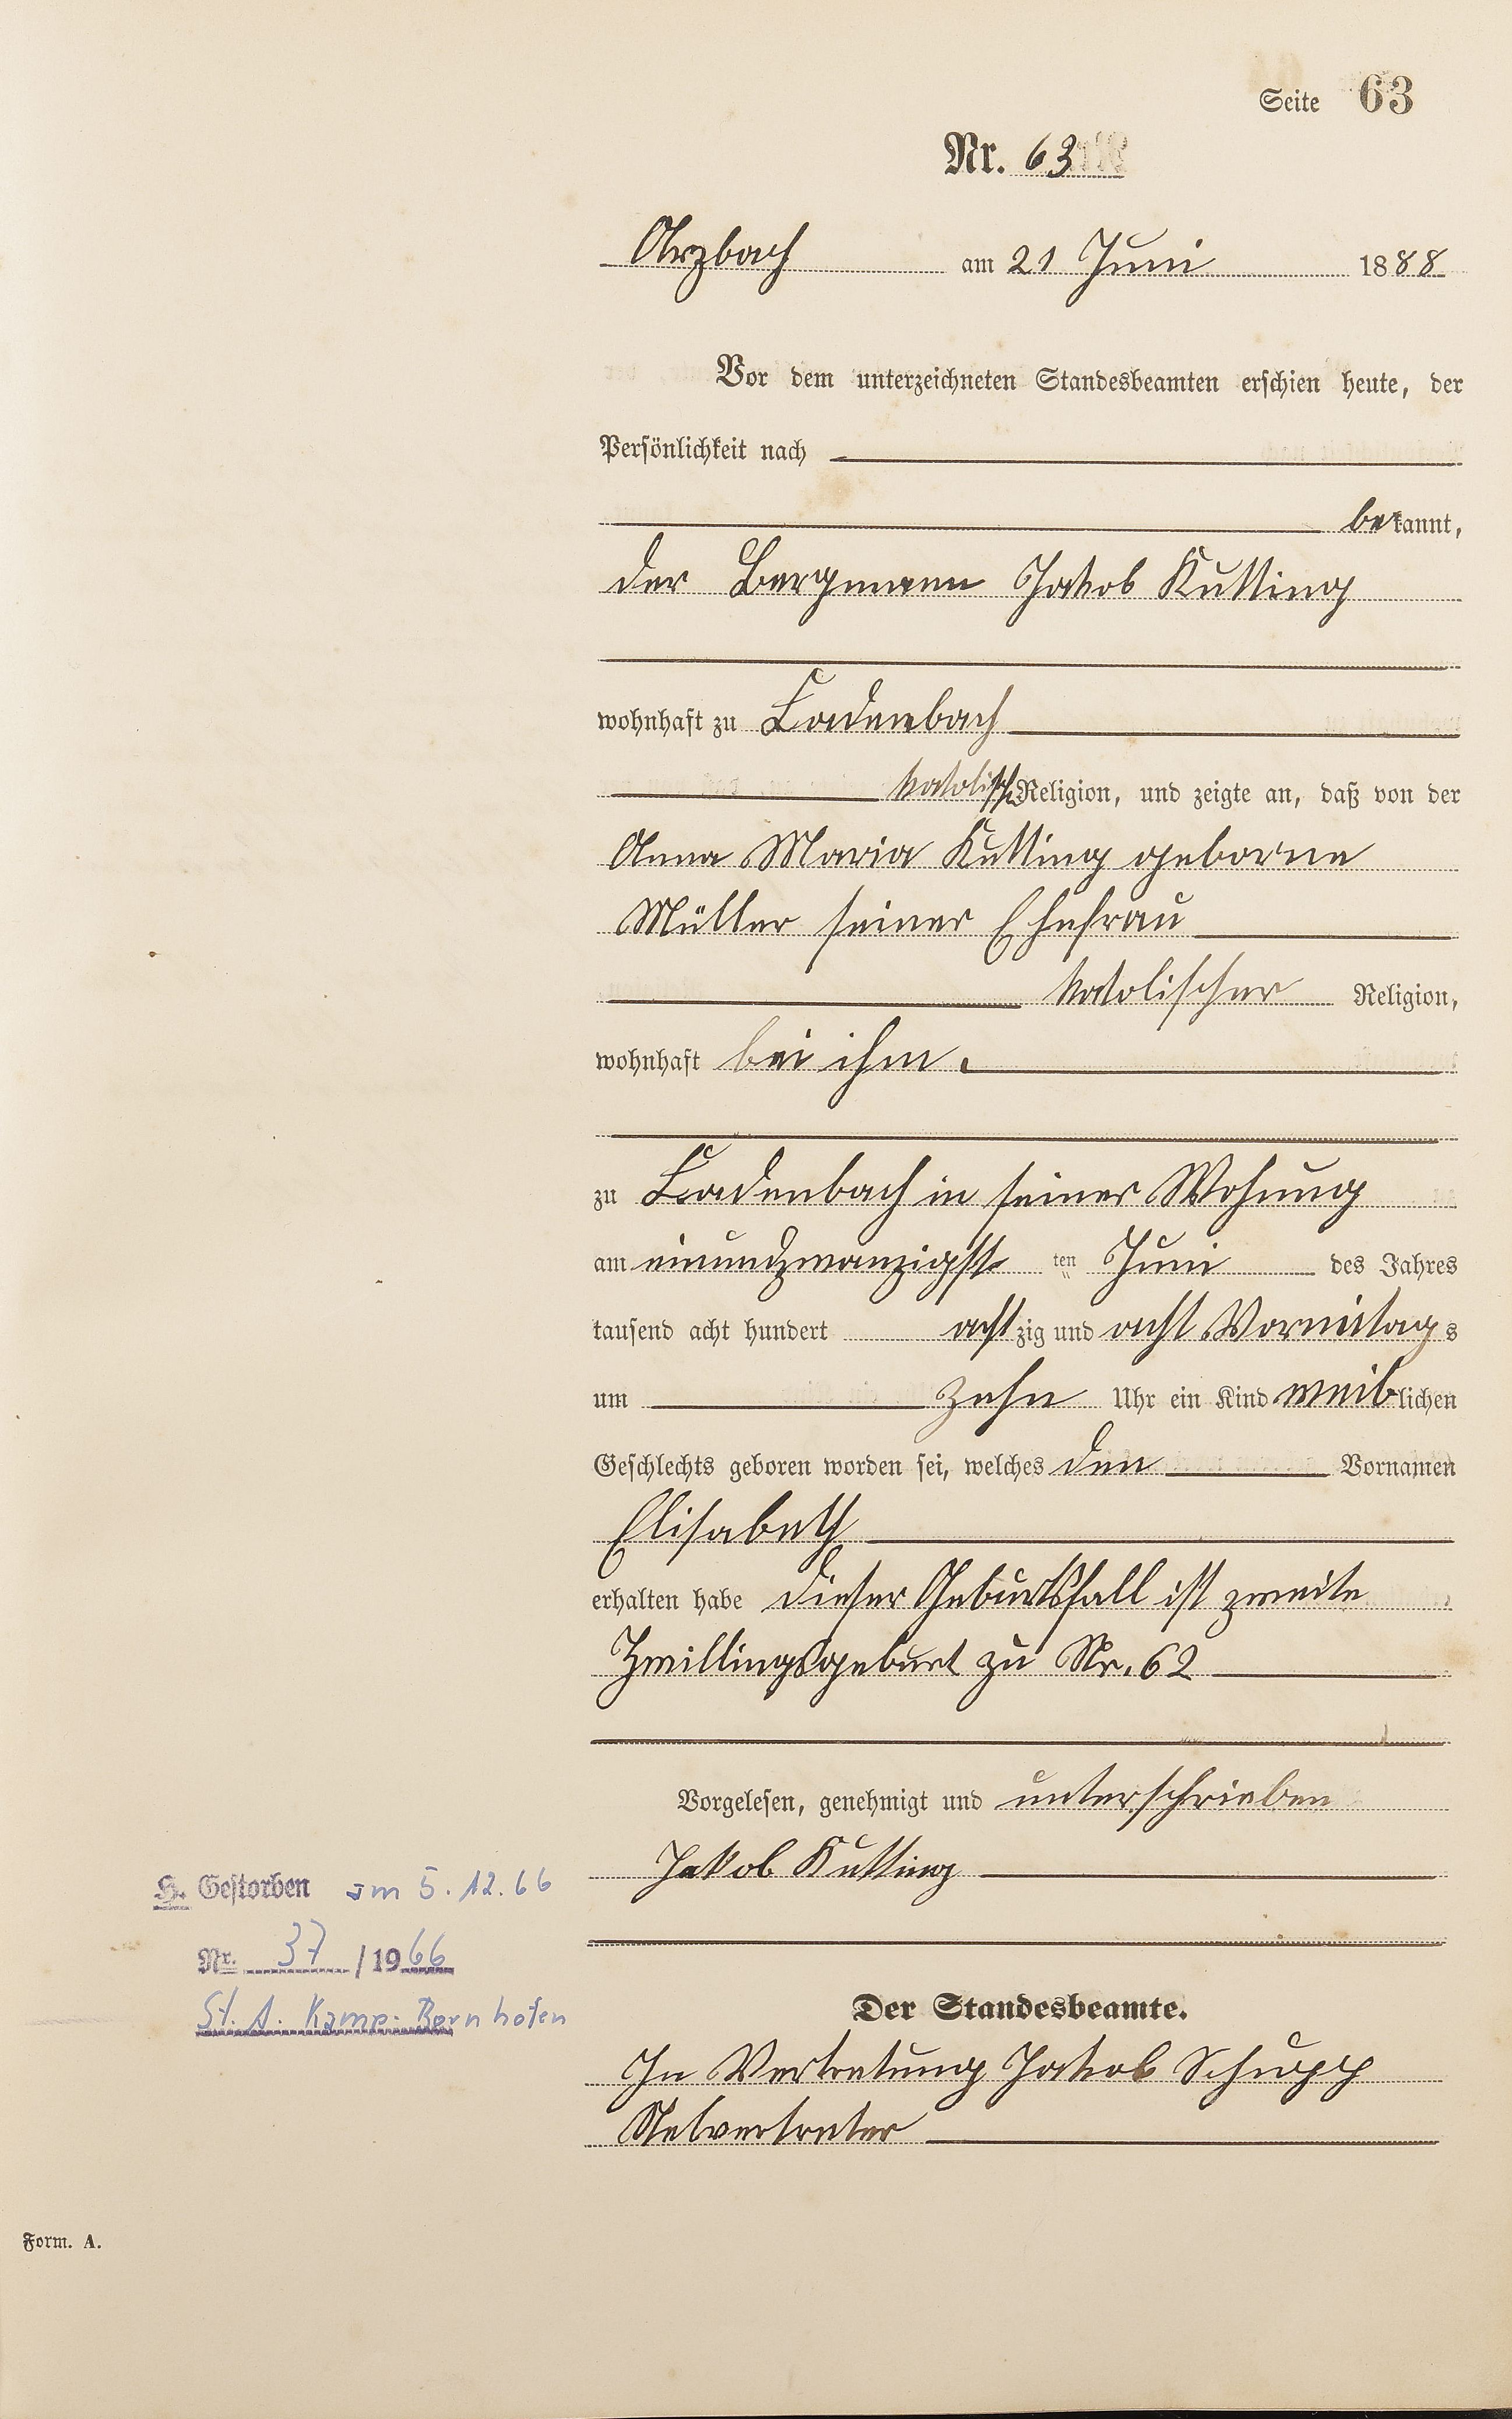 Seite 63
Nr. 63
Arzbach am 21 Juni 1888
Vor dem unterzeichneten Standesbeamten erschien heute, der
Persönlichkeit nach
bekannt,
der Bergmann Jakob Kutting
wohnhaft zu Cadenbach
katolischer Religion, und zeigte an, daß von der
Anna Maria Kutting geborne
Müller seiner Ehefrau
katolischer Religion,
wohnhaft bei ihm.
zu Cadenbach in seiner Wohnung
am einundzwanzigste ten Juni des Jahres
tausend acht hundert achtzig und acht Vormittags
um zehn Uhr ein Kind weiblichen
Geschlechts geboren worden sei, welches den Vornamen
Elisabeth
erhalten habe dieser Geburtsfall ist zweite
Zwillingsgeburt zu Nr. 62
Vorgelesen, genehmigt und unterschrieben
Jakob Kutting
H. Gestorben am 5.12.66
Nr. 37 / 1966
St. A. Kamp-Bornhofen
Der Standesbeamte.
In Vertretung Jakob Schupp
Stelvertreter
Form. A.